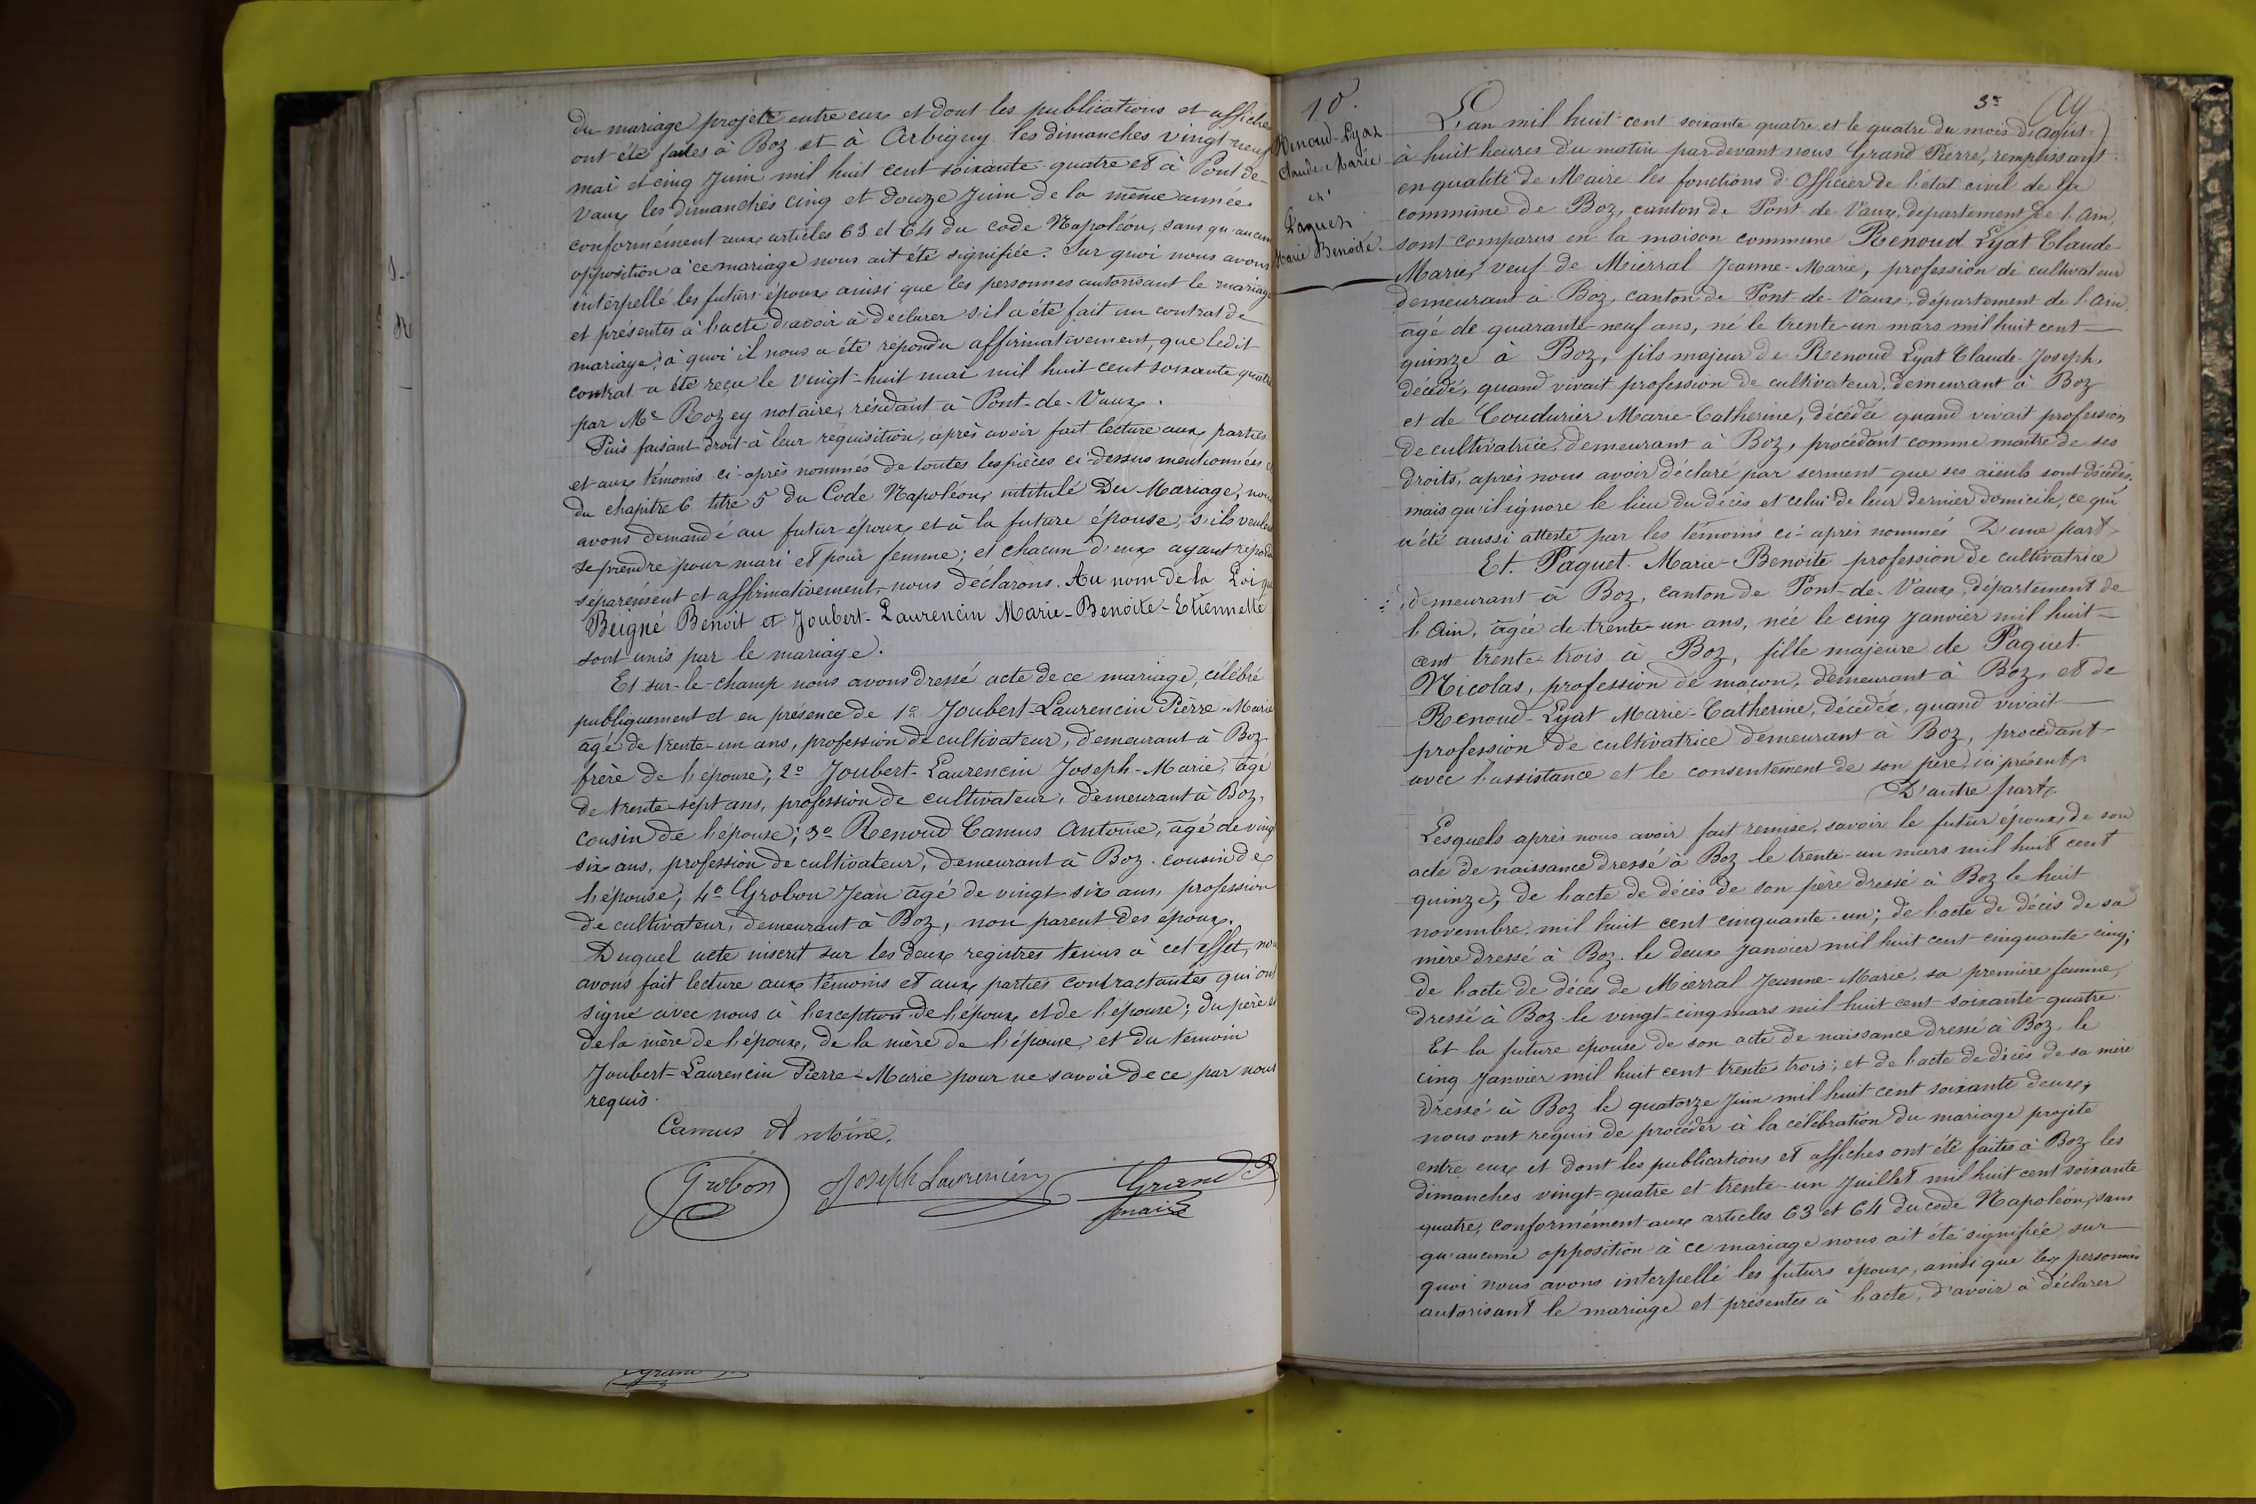 du mariage projeté entre eux et dont les publications et affiches
ont été faites à Boz et à Arbigny les dimanches vingt-neuf
mai et cinq Juin mil huit cent soixante-quatre et à Pont-de-
Vaux les dimanches cinq et douze Juin de la même année
conformément aux articles 63 et 64 du code Napoléon, sans qu'aucune
opposition à ce mariage nous ait été signifiée. Sur quoi nous avons
interpellé les futurs époux ainsi que les personnes autorisant le mariage
et présentes à l'acte d'avoir à déclarer s'il a été fait un contrat de
mariage, à quoi il nous a été répondu affirmativement, que ledit
contrat a été reçu le vingt-huit mai mil huit cent soixante quatre
par Me Rozey notaire, résidant à Pont-de-Vaux.
Puis faisant droit à leur réquisition, après avoir fait lecture aux parties
et aux témoins ci-après nommés de toutes les pièces ci-dessus mentionnées et
du chapitre 6 titre 5 du Code Napoléon, intitulé Du Mariage, nous
avons demandé au futur époux et à la future épouse, s'ils veulent
se prendre pour mari et pour femme; et chacun d'eux ayant répondu
séparément et affirmativement, nous déclarons. Au nom de la Loi que
Beigne Benoit et Joubert-Laurencin Marie-Benoite-Etiennette
sont unis par le mariage.
Et sur-le-champ nous avons dressé acte de ce mariage, célébré
publiquement et en présence de 1º Joubert-Laurencin Pierre-Marie
âgé de trente-un ans, profession de cultivateur, demeurant à Boz
frère de l'épouse; 2º Joubert-Laurencin Joseph-Marie, âgé
de trente-sept ans, profession de cultivateur, demeurant à Boz,
cousin de l'épouse; 3º Renoud Camus Antoine, âgé de vingt
six ans, profession de cultivateur, demeurant à Boz. cousin de
l'épouse; 4º Grobon Jean âgé de vingt-six ans, profession
de cultivateur, demeurant à Boz, non parent des époux.
Duquel acte inscrit sur les deux registres tenus à cet effet, nous
avons fait lecture aux témoins et aux parties contractantes qui ont
signé avec nous à l'exception de l'époux et de l'épouse; du père et
de la mère de l'époux, de la mère de l'épouse et du témoin
Joubert-Laurencin Pierre-Marie pour ne savoir de ce par nous
requis.
Camus Antoine.
Grobon Joseph Laurencin Grand P
maire
10.
Renoud-Lyat
Claude Marie
et
Paquet
Marie Benoite.
L'an mil huit cent soixante quatre et le quatre du mois d'Août
à huit heures du matin pardevant nous Grand Pierre, remplissant
en qualité de Maire les fonctions d'Officier de l'état civil de la
commune de Boz, canton de Pont-de-Vaux, département de l'Ain,
sont comparus en la maison commune Renoud Lyat Claude-
Marie, veuf de Mierral Jeanne-Marie, profession de cultivateur
demeurant à Boz, canton de Pont-de-Vaux, département de l'Ain
âgé de quarante-neuf ans, né le trente-un mars mil huit cent
quinze à Boz, fils majeur de Renoud Lyat Claude-Joseph,
décédé, quand vivait profession de cultivateur, demeurant à Boz
et de Coudurier Marie-Catherine, décédée quand vivait profession
de cultivatrice, demeurant à Boz, procédant comme maître de ses
droits, après nous avoir déclaré par serment que ses aïeuls sont décédés,
mais qu'il ignore le lieu du décès et celui de leur dernier domicile, ce qui
a été aussi attesté par les témoins ci-après nommés D'une part
Et. Paquet. Marie-Benoite profession de cultivatrice
demeurant à Boz, canton de Pont-de-Vaux, département de
l'Ain, âgée de trente-un ans, née le cinq Janvier mil huit-
cent trente-trois à Boz, fille majeure de Paquet.
Nicolas, profession de maçon, demeurant à Boz, et de
Renoud-Lyat Marie-Catherine, décédée, quand vivait
profession de cultivatrice demeurant à Boz, procédant
avec l'assistance et le consentement de son père, ici présent,
D'autre part.
Lesquels après nous avoir fait remise, savoir le futur époux, de son
acte de naissance dressé à Boz le trente-un mars mil huit cent
quinze; de l'acte de décès de son père dressé à Boz le huit
novembre mil huit cent cinquante-un; de l'acte de décès de sa
mère dressé à Boz. le deux Janvier mil huit cent cinquante-cinq;
de l'acte de décès de Mierral Jeanne-Marie, sa première femme,
dressé à Boz le vingt-cinq mars mil huit cent soixante-quatre
Et la future épouse de son acte de naissance dressé à Boz, le
cinq Janvier mil huit cent trente trois; et de l'acte de décès de sa mère
dressé à Boz le quatorze Juin mil huit cent soixante deux,
nous ont requis de procéder à la célébration du mariage projeté
entre eux et dont les publications et affiches ont été faites à Boz les
dimanches vingt-quatre et trente-un Juillet mil huit cent soixante
quatre, conformément aux articles 63 et 64 du code Napoléon, sans
qu'aucune opposition à ce mariage nous ait été signifiée, sur
quoi nous avons interpellé les futurs époux, ainsi que les personnes
autorisant le mariage et présentes à l'acte, d'avoir à déclarer